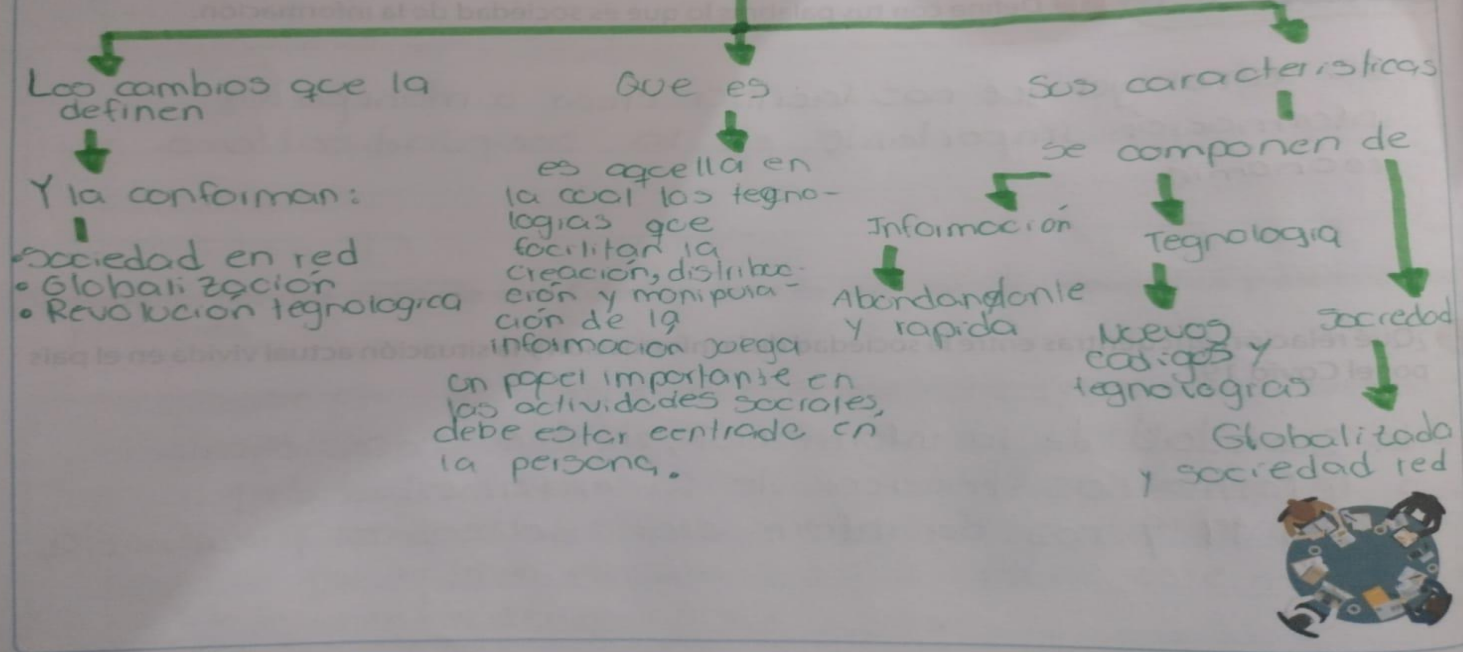 Los cambios que la
definen
Y la conforman:
• Sociedad en red
• Globalización
• Revolución tegnologica
Que es
es aquella en
la cual las tegno-
logias que
facilitan la
creación, distribu-
ción y manipula-
ción de la
informacion juega
un papel importante en
las actividades sociales,
debe estar centrada en
la persona.
Sus caracteristicas
se componen de
Información
Abondandante
y rapida
Tegnologia
Nuevos
codigos y
tegnologias
Sociedad
Globalizada
y sociedad red